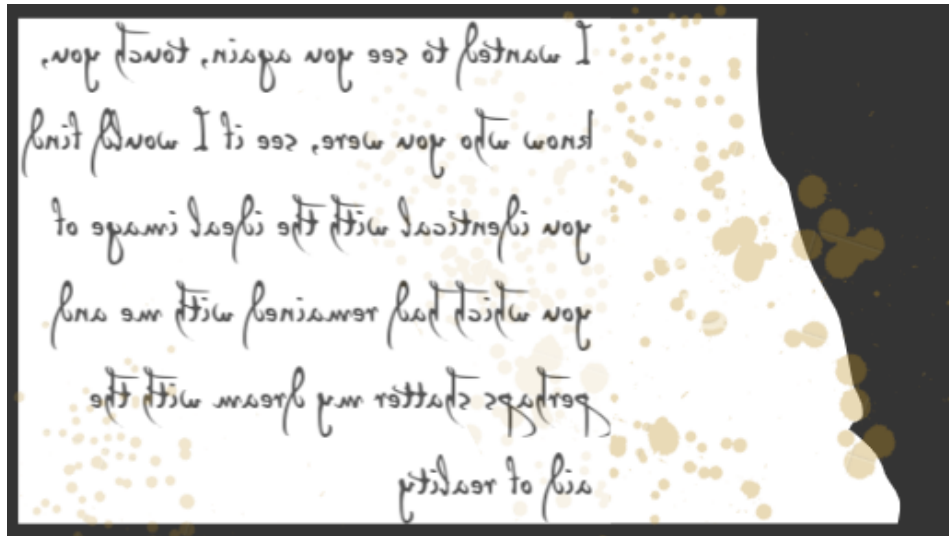 I wanted to see you again, touch you,
know who you were, see if I would find
you identical with the ideal image of
you which had remained with me and
perhaps shatter my dream with the
aid of reality